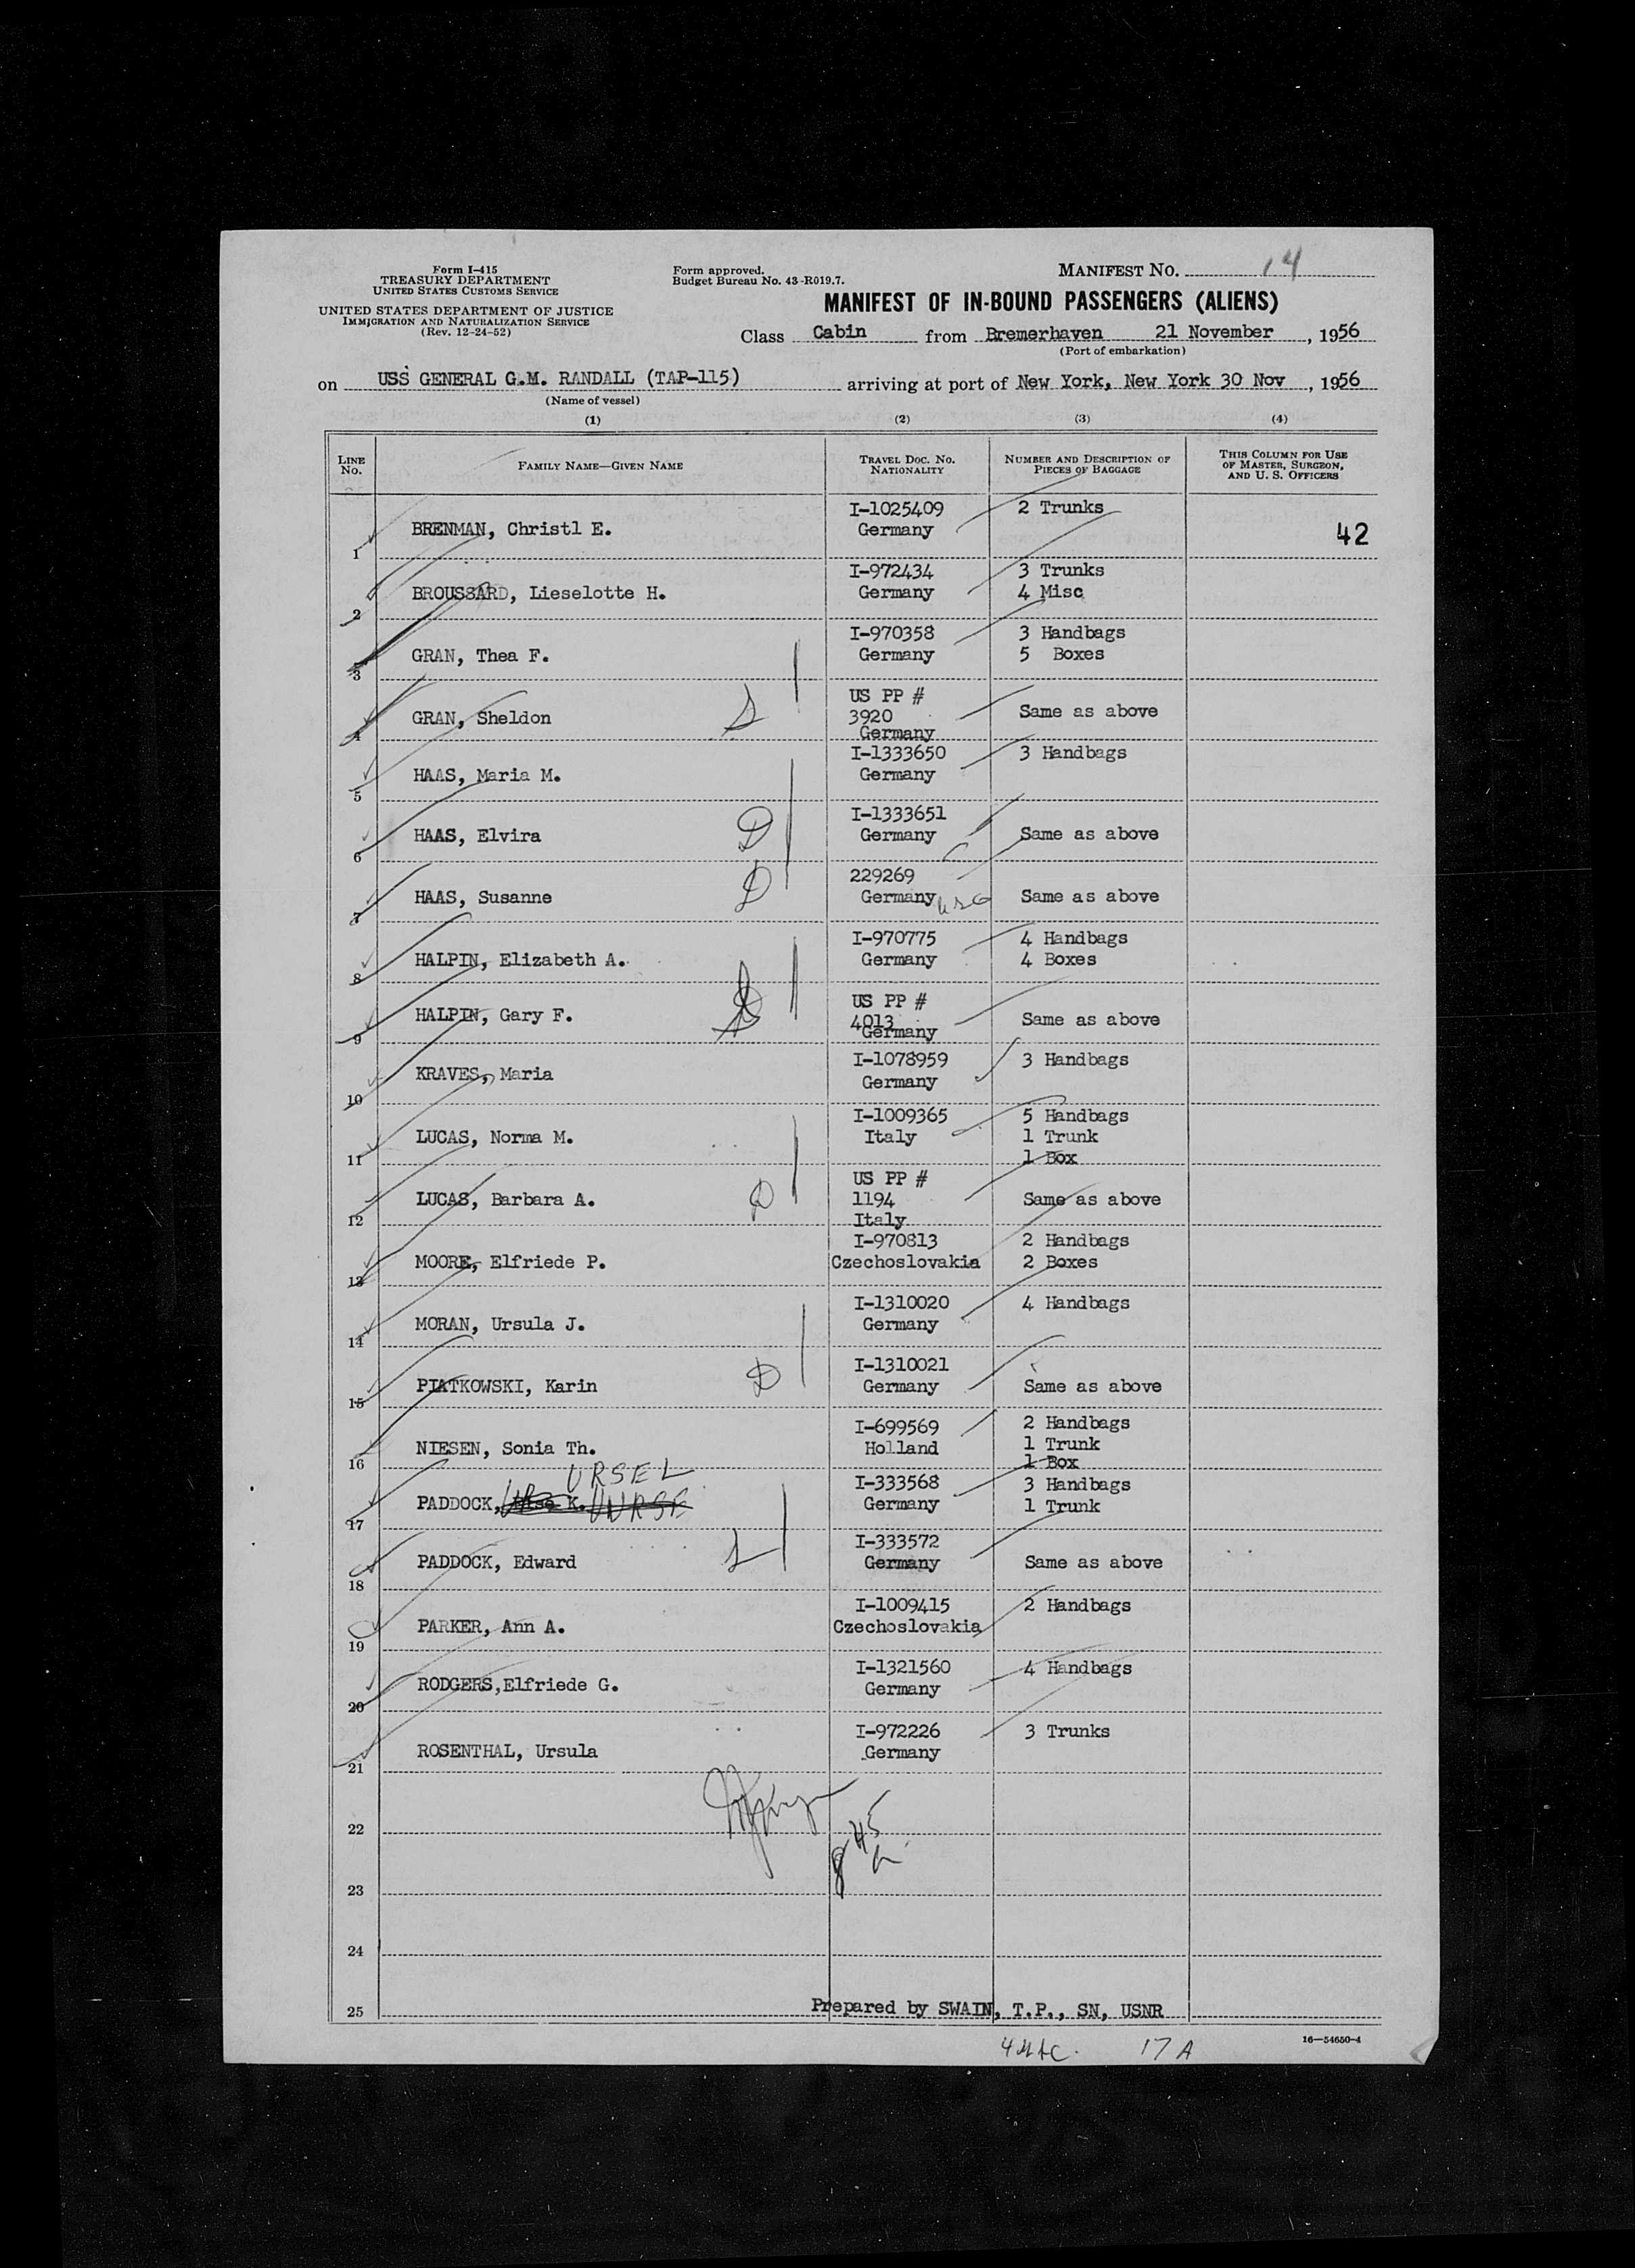 Form I-415
TREASURY DEPARTMENT
UNITED STATES CUSTOMS SERVICE
UNITED STATES DEPARTMENT OF JUSTICE
IMMIGRATION AND NATURALIZATION SERVICE
(Rev. 12-24-52)
Form approved.
Budget Bureau No. 43-R019.7.
MANIFEST No. 14
MANIFEST OF IN-BOUND PASSENGERS (ALIENS)
Class Cabin from Bremerhaven 21 November, 1956
(Port of embarkation)
on USS GENERAL G.M. RANDALL (TAP-115) arriving at port of New York, New York 30 Nov, 1956
(Name of vessel)
(1) (2) (3) (4)
LINE No. FAMILY NAME—GIVEN NAME TRAVEL DOC. NO. NATIONALITY NUMBER AND DESCRIPTION OF PIECES OF BAGGAGE THIS COLUMN FOR USE OF MASTER, SURGEON, AND U. S. OFFICERS
1 BRENMAN, Christl E. I-1025409 Germany 2 Trunks 42
2 BROUSSARD, Lieselotte H. I-972434 Germany 3 Trunks 4 Misc
3 GRAN, Thea F. I-970358 Germany 3 Handbags 5 Boxes
4 GRAN, Sheldon US PP # 3920 Germany Same as above
5 HAAS, Maria M. I-1333650 Germany 3 Handbags
6 HAAS, Elvira D I-1333651 Germany Same as above
7 HAAS, Susanne D 229269 Germany Same as above
8 HALPIN, Elizabeth A. I-970775 Germany 4 Handbags 4 Boxes
9 HALPIN, Gary F. US PP # 4013 Germany Same as above
10 KRAVES, Maria I-1078959 Germany 3 Handbags
11 LUCAS, Norma M. I-1009365 Italy 5 Handbags 1 Trunk 1 Box
12 LUCAS, Barbara A. D US PP # 1194 Italy Same as above
13 MOORE, Elfriede P. I-970813 Czechoslovakia 2 Handbags 2 Boxes
14 MORAN, Ursula J. I-1310020 Germany 4 Handbags
15 PIATKOWSKI, Karin D I-1310021 Germany Same as above
16 NIESEN, Sonia Th. I-699569 Holland 2 Handbags 1 Trunk 1 Box
URSEL
17 PADDOCK, K. I-333568 Germany 3 Handbags 1 Trunk
18 PADDOCK, Edward I-333572 Germany Same as above
19 PARKER, Ann A. I-1009415 Czechoslovakia 2 Handbags
20 RODGERS,Elfriede G. I-1321560 Germany 4 Handbags
21 ROSENTHAL, Ursula I-972226 Germany 3 Trunks
22
23
24
25 Prepared by SWAIN, T.P., SN, USNR
17 A
16—54650-4